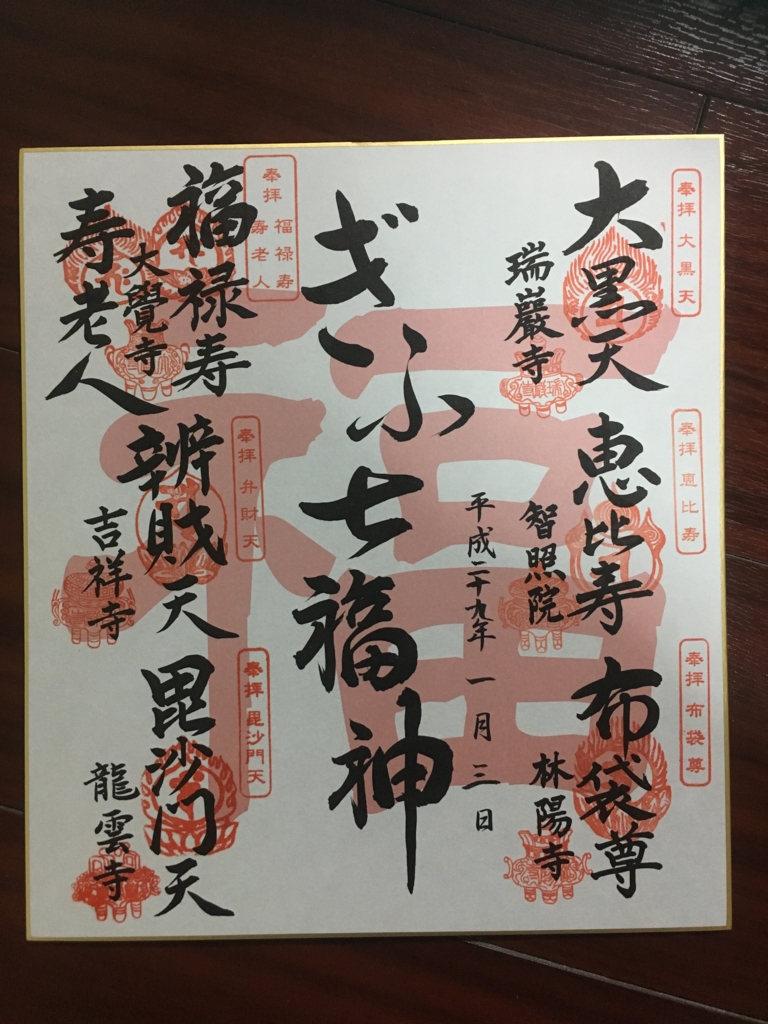 奉拝 大黒天
大黒天
瑞巖寺
奉拝 恵比寿
恵比寿
智照院
奉拝 布袋尊
布袋尊
林陽寺
平成二十九年 一月三日
ぎふ七福神
福
奉拝 福禄寿 寿老人
福禄寿
大覺寺
寿老人
奉拝 弁財天
辨財天
吉祥寺
奉拝 毘沙門天
毘沙門天
龍雲寺